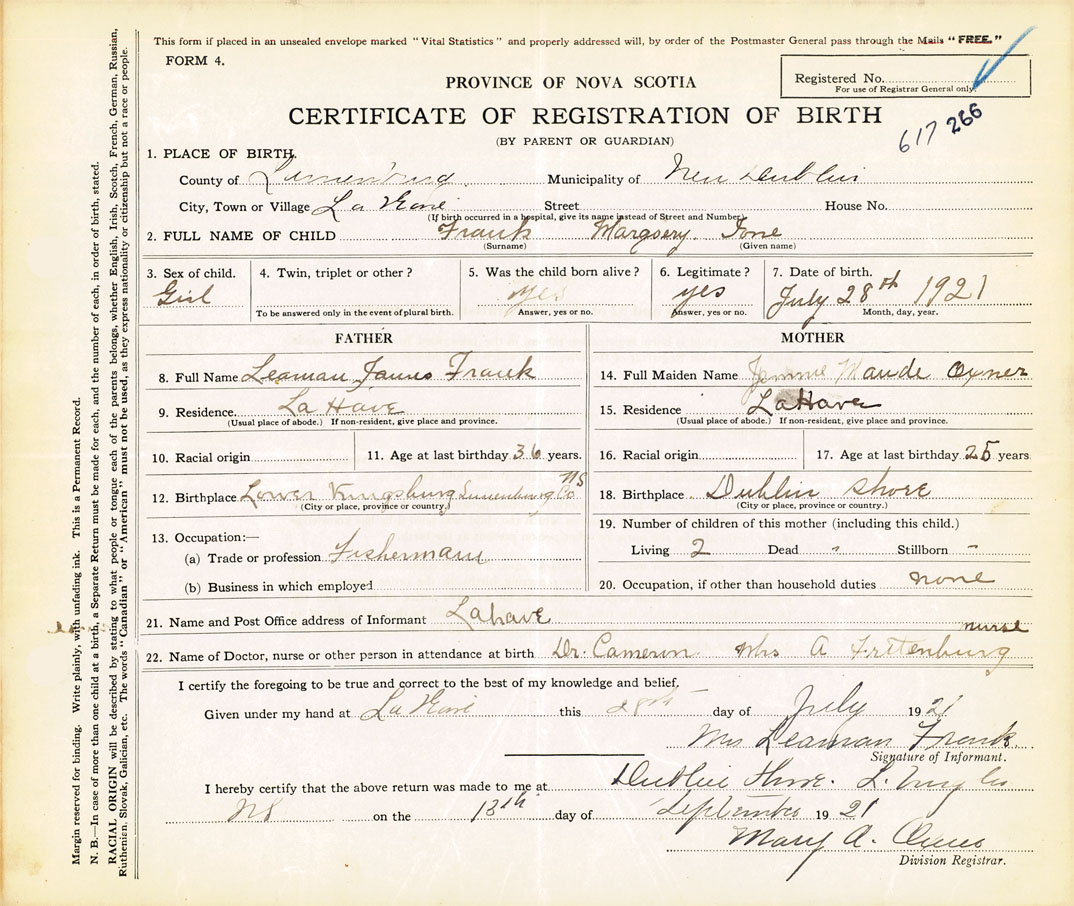 This form if placed in an unsealed envelope marked "Vital Statistics" and properly addressed will, by order of the Postmaster General pass through the Mails "FREE."
FORM 4.
Registered No.
For use of Registrar General only.
617 266
PROVINCE OF NOVA SCOTIA
CERTIFICATE OF REGISTRATION OF BIRTH
(BY PARENT OR GUARDIAN)
1. PLACE OF BIRTH.
County of Lunenburg Municipality of New Dublin
City, Town or Village La Have Street House No.
(If birth occurred in a hospital, give its name instead of Street and Number)
2. FULL NAME OF CHILD Frank Margsery Ione
(Surname) (Given name)
3. Sex of child. 4. Twin, triplet or other? 5. Was the child born alive? 6. Legitimate? 7. Date of birth.
Girl yes yes July 28th 1921
To be answered only in the event of plural birth. Answer, yes or no. Answer, yes or no. Month, day, year.
FATHER MOTHER
8. Full Name Leaman James Frank 14. Full Maiden Name Maude Oxner
9. Residence. La Have 15. Residence LaHave
(Usual place of abode.) If non-resident, give place and province. (Usual place of abode.) If non-resident, give place and province.
10. Racial origin 11. Age at last birthday 36 years. 16. Racial origin 17. Age at last birthday 25 years
12. Birthplace Lower Kingsburg Lunenburg Co NS 18. Birthplace Dublin Shore
(City or place, province or country.) (City or place, province or country.)
13. Occupation:— 19. Number of children of this mother (including this child.)
(a) Trade or profession Fishermann Living 2 Dead " Stillborn -
(b) Business in which employed 20. Occupation, if other than household duties none
21. Name and Post Office address of Informant Lahave
22. Name of Doctor, nurse or other person in attendance at birth Dr. Cameron Mrs A Frittenburg nurse
I certify the foregoing to be true and correct to the best of my knowledge and belief.
Given under my hand at La Have this 28th day of July 1921
Mrs Leaman Frank
Signature of Informant.
I hereby certify that the above return was made to me at Dublin Shore. L.
NS on the 13th day of September 1921
Mary A.
Division Registrar.
Margin reserved for binding. Write plainly, with unfading ink. This is a Permanent Record.
N. B.—In case of more than one child at a birth, a Separate Return must be made for each, and the number of each, in order of birth, stated.
RACIAL ORIGIN will be described by stating to what people or tongue each of the parents belongs, whether English, Irish, Scotch, French, German, Russian,
Ruthenian, Slovak, Galician, etc. The words "Canadian" or "American" must not be used, as they express nationality or citizenship but not a race or people.